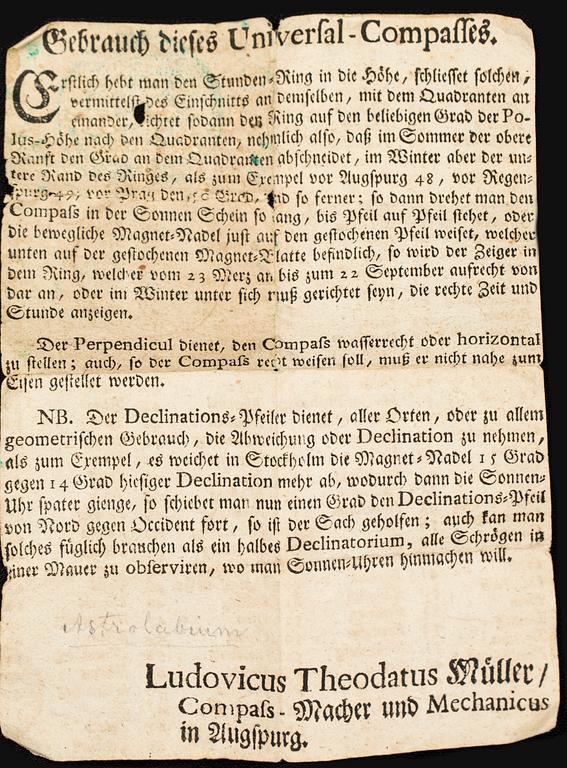 Gebrauch dieses Universal-Compasses.
Erstlich hebt man den Stunden-Ring in die Höhe, schliesset solchen,
vermittelst des Einschnitts an demselben, mit dem Quadranten an
einander, richtet sodann den Ring auf den beliebigen Grad der Po-
lus-Höhe nach den Quadranten, nehmlich also, daß im Sommer der obere
Ranft den Grad an dem Quadranten abschneidet, im Winter aber der un-
tere Rand des Ringes, als zum Exempel vor Augspurg 48, vor Regen-
spurg 49, vor Prag den 50 Grad, und so ferner; so dann drehet man den
Compaß in der Sonnen Schein so lang, bis Pfeil auf Pfeil stehet, oder
die bewegliche Magnet-Nadel just auf den gestochenen Pfeil weiset, welcher
unten auf der gestochenen Magnet-Platte befindlich, so wird der Zeiger in
dem Ring, welcher vom 23 Merz an bis zum 22 September aufrecht von
dar an, oder im Winter unter sich muß gerichtet seyn, die rechte Zeit und
Stunde anzeigen.
Der Perpendicul dienet, den Compaß wasserrecht oder horizontal
zu stellen; auch, so der Compaß recht weisen soll, muß er nicht nahe zum
Eisen gestellet werden.
NB. Der Declinations-Pfeiler dienet, aller Orten, oder zu allem
geometrischen Gebrauch, die Abweichung oder Declination zu nehmen,
als zum Exempel, es weichet in Stockholm die Magnet-Nadel 15 Grad
gegen 14 Grad hiesiger Declination mehr ab, wodurch dann die Sonnen-
Uhr spater gienge, so schiebet man nun einen Grad den Declinations-Pfeil
von Nord gegen Occident fort, so ist der Sach geholfen; auch kan man
solches füglich brauchen als ein halbes Declinatorium, alle Schrögen in
einer Mauer zu observiren, wo man Sonnen-Uhren hinmachen will.
Astrolabium
Ludovicus Theodatus Müller/
Compaß-Macher und Mechanicus
in Augspurg.